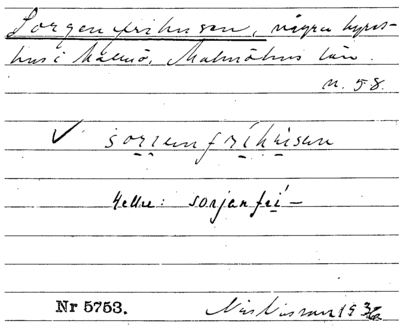 Sorgenfrihusen, några hyres-
hus i Malmö, Malmöhus län.
n. 58.
✓ sorjenfríhúsen
Hellre: sorjanfrí –
Nr 5753.
Nils Nilsson 19